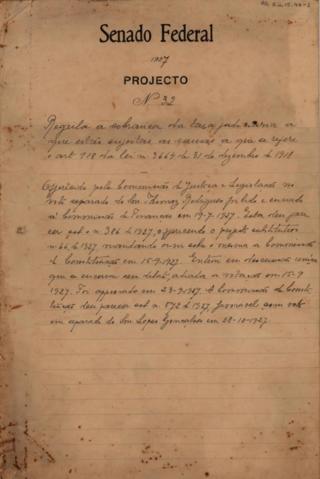 Senado Federal
1927
PROJECTO
Nº 32
Regula a cobrança da taxa judiciaria a
que estão sujeitas as a que se refere
o art. 918 da lei n. 3664 de 31 de dezembro de 1918
pela Commissão de Justiça e Legislação no
voto separado do Sen. Thomaz Rodrigues foi lido e enviado
á Commissão de Finanças em 19-7-1927. Esta deu pare
cer sob o n. 386 de 1927, offerecendo o projecto substitutivo
n. 66 de 1927 mandando ouvir sobre o mesmo a Commissão
de Constituição em 15-9-1927. Entrou em discussão
que se encerrou sem debate, adiada a votação em 15-9
1927. Foi approvado em 23-9-927. A Commissão de Consti-
tuição deu parecer sob n. 572 de 1927, favoravel com voto
em separado do Sen. Lopes Gonçalves em 28-10-1927.